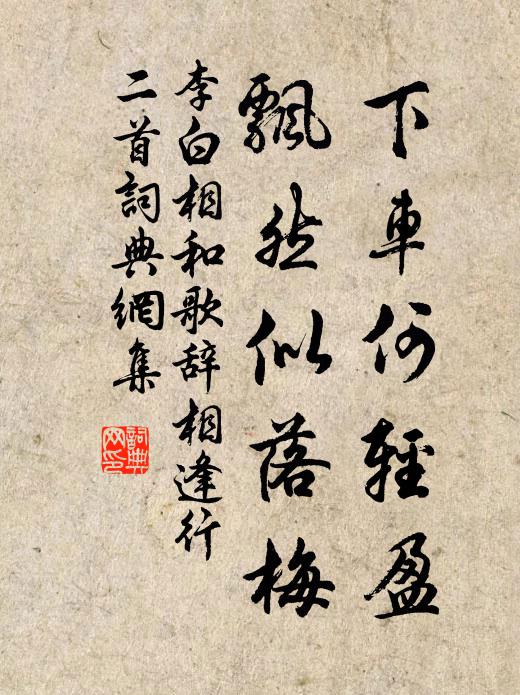 下車何輕盈
飄然似落梅
李白相和歌辞相逢行
二首詞典網集
詞典网印